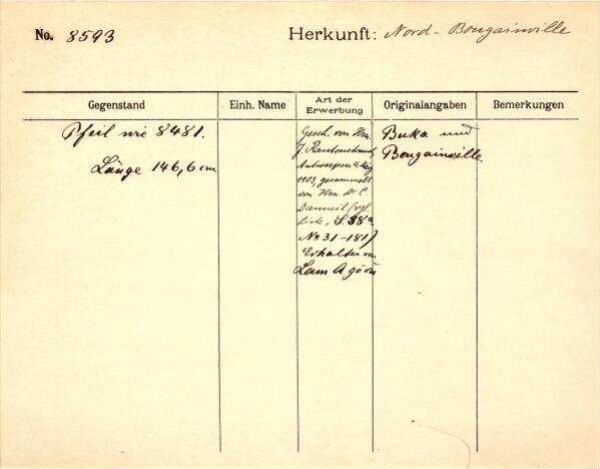 No. 8593
Herkunft: Nord-Bougainville
Gegenstand
Einh. Name
Art der Erwerbung
Originalangaben
Bemerkungen
Pfeil wie 8481.
Länge 146,6 cm
Gesch. von Hrn.
J. Rautenstrauch,
Antwerpen
1903, gesammelt
von Hrn. Dr C.
Danneil
Liste, S 38a
No 31-181)
Erhalten
Buka und
Bougainville.